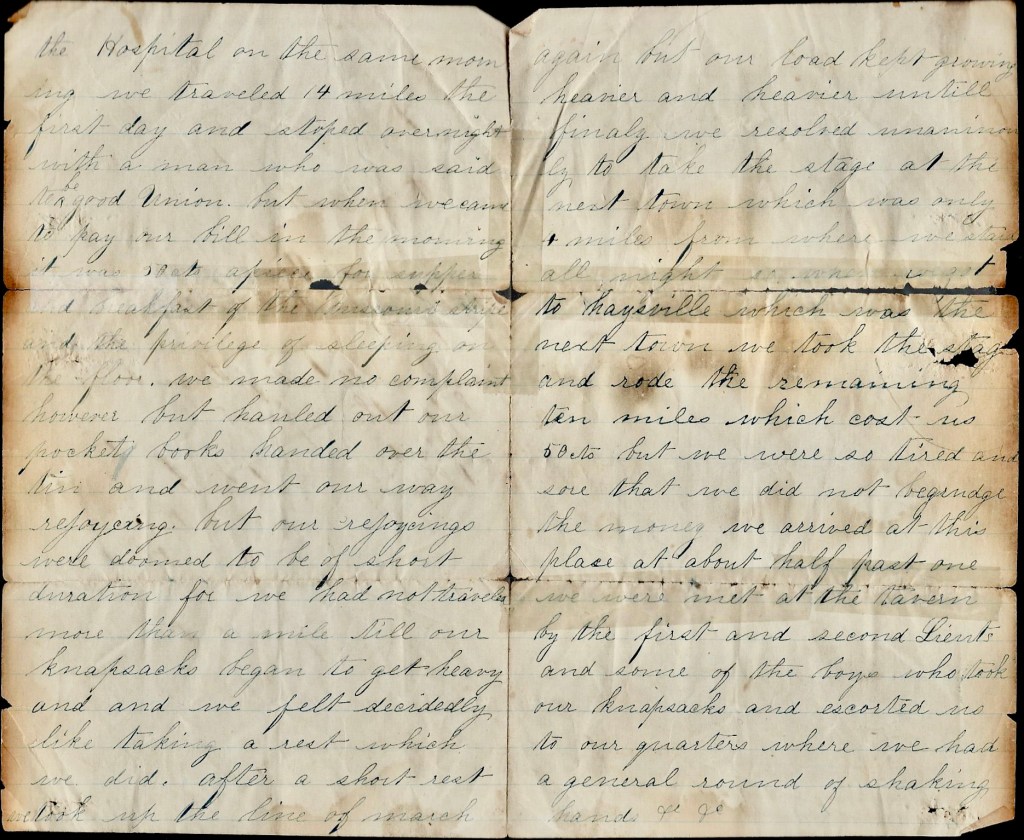 the Hospital on the same morn
ing we traveled 14 miles the
first day and stoped over night
with a man who was said
to be good Union. but when we came
to pay our bill in the morning
it was 50 cts apiece for supper
and breakfast of the Missouri stripe
and the privilege of sleeping on
the floor. we made no complaint
however but hauled out our
pocket books handed over the
tin and went our way
rejoyceing. but our rejoycings
were doomed to be of short
duration for we had not traveled
more than a mile till our
knapsacks began to get heavy
and and we felt decidedly
like taking a rest which
we did. after a short rest
we took up the line of march
again but our load kept growing
heavier and heavier untill
finaly we resolved unanimou
ly to take the stage at the
next town which was only
4 miles from where we staid
all night so when we got
to Haysville which was the
next town we took the stage
and rode the remaining
ten miles which cost us
50 cts but we were so tired and
sore that we did not begrudge
the money we arrived at this
place at about half past one
we were met at the tavern
by the first and second Lieuts
and some of the boys who took
our knapsacks and escorted us
to our quarters where we had
a general round of shaking
hands &c &c